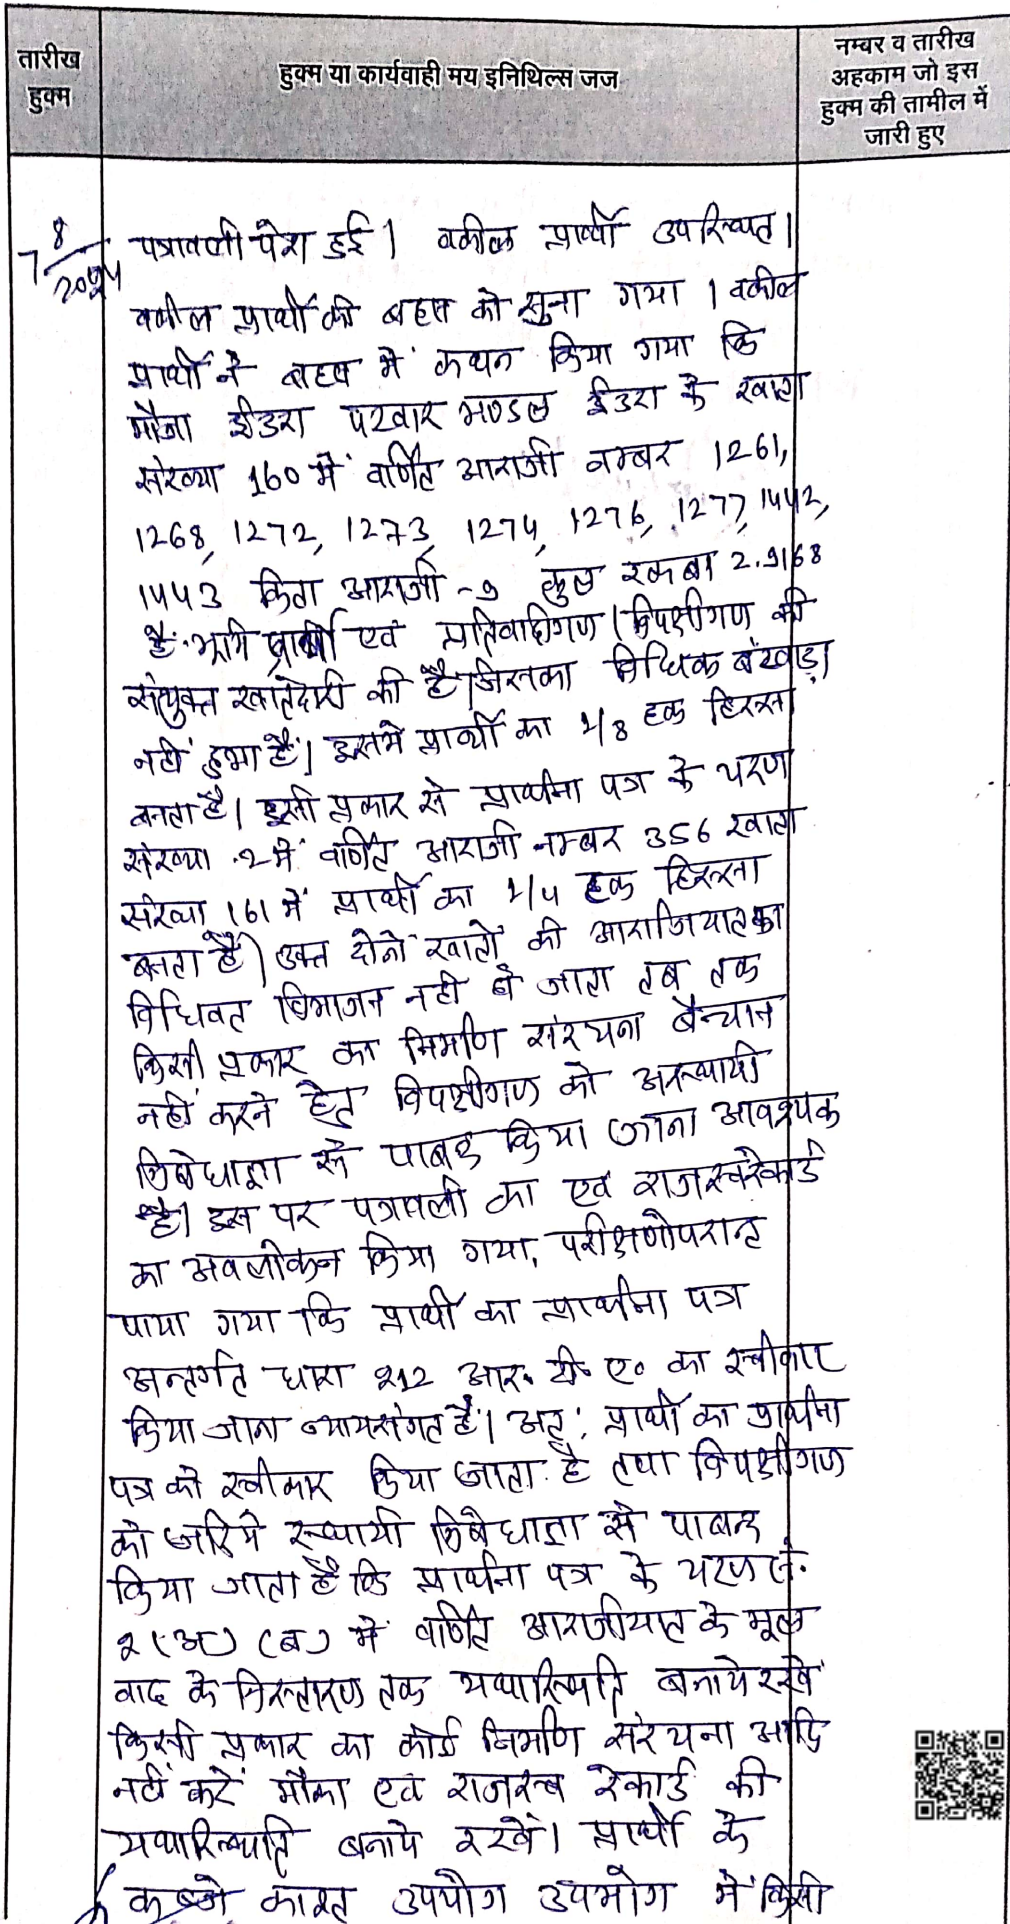 तारीख
हुक्म
हुक्म या कार्यवाही मय इनिथिल्स जज
नम्बर व तारीख
अहकाम जो इस
हुक्म की तामील में
जारी हुए
7/8/2024
पत्रावली पेश हुई। वकील प्रार्थी उपस्थित।
वकील प्रार्थी की बहस को सुना गया। वकील
प्रार्थी ने बहस में कथन किया गया कि
मौजा ईडरा पटवार मण्डल ईडरा के खाता
संख्या 160 में वर्णित आराजी नम्बर 1261,
1268, 1272, 1273, 1274, 1276, 1277, 1442,
1443 किता आराजी -9 कुल रकबा 2.9168
है. प्रार्थी एवं प्रतिवादीगण/विपक्षीगण की
संयुक्त खातेदारी की है। जिसका विधिक बंटवाड़ा
नहीं हुआ है। इसमें प्रार्थी का 1/8 हक हिस्सा
बनता है। इसी प्रकार से प्रार्थना पत्र के चरण
संख्या 2 में वर्णित आराजी नम्बर 356 खाता
संख्या 161 में प्रार्थी का 1/4 हक हिस्सा
बनता है। उक्त दोनो खातों की आराजियात का
विधिवत विभाजन नही हो जाता तब तक
किसी प्रकार का निर्माण संरचना बैचान
नहीं करने हेतु विपक्षीगण को अस्थायी
निषेधाज्ञा से पाबन्द किया जाना आवश्यक
है। इस पर पत्रावली का एवं राजस्व रेकार्ड
का अवलोकन किया गया, परीक्षणोपरान्त
पाया गया कि प्रार्थी का प्रार्थना पत्र
अन्तर्गत धारा 212 आर. टी. ए० का स्वीकार
किया जाना न्यायसंगत है। अतः प्रार्थी का प्रार्थना
पत्र को स्वीकार किया जाता है तथा विपक्षीगण
को जरिये स्थायी निषेधाज्ञा से पाबन्द
किया जाता है कि प्रार्थना पत्र के चरण सं.
2 (अ) (ब) में वर्णित आराजीयात के मूल
वाद के निस्तारण तक यथास्थिति बनाये रखे
किसी प्रकार का कोई निर्माण संरचना आदि
नहीं करें मौका एवं राजस्व रेकार्ड की
यथास्थिति बनाये रखें। प्रार्थी के
कब्जे काश्त उपयोग उपभोग में किसी